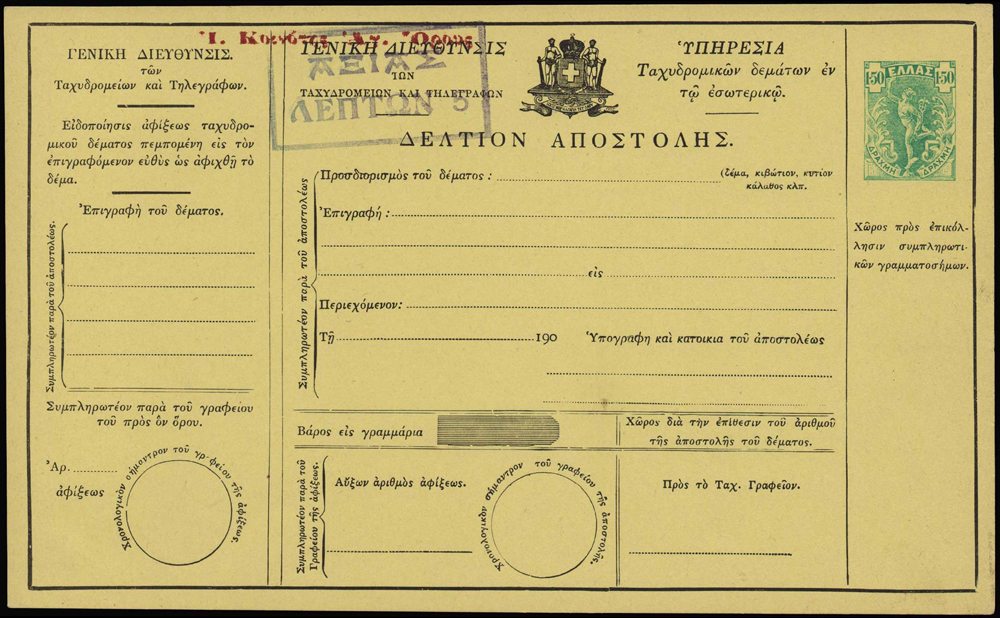 Ἱ. Κοινότης Ἁγ. Ὄρους
ΓΕΝΙΚΗ ΔΙΕΥΘΥΝΣΙΣ.
τῶν
Ταχυδρομείων καὶ Τηλεγράφων.
Εἰδοποίησις ἀφίξεως ταχυδρο-
μικοῦ δέματος πεμπομένη εἰς τὸν
ἐπιγραφόμενον εὐθὺς ὡς ἀφιχθῇ τὸ
δέμα.
Ἐπιγραφὴ τοῦ δέματος.
Συμπληρωτέον παρὰ τοῦ ἀποστολέως.
Συμπληρωτέον παρὰ τοῦ γραφείου
τοῦ πρὸς ὃν ὅρου.
Ἀρ.
ἀφίξεως
Χρονολογικὸν σήμαντρον τοῦ γραφείου τῆς ἀφίξεως.
ΓΕΝΙΚΗ ΔΙΕΥΘΥΝΣΙΣ
ΤΩΝ
ΤΑΧΥΔΡΟΜΕΙΩΝ ΚΑΙ ΤΗΛΕΓΡΑΦΩΝ
ΑΞΙΑΣ
ΛΕΠΤΩΝ 5
ὙΠΗΡΕΣΙΑ
Ταχυδρομικῶν δεμάτων ἐν
τῷ ἐσωτερικῷ.
ΔΕΛΤΙΟΝ ΑΠΟΣΤΟΛΗΣ.
Συμπληρωτέον παρὰ τοῦ ἀποστολέως
Προσδιορισμὸς τοῦ δέματος : (δέμα, κιβώτιον, κυτίον
κάλαθος κλπ.
Ἐπιγραφή :
εἰς
Περιεχόμενον:
Τῇ 190 Ὑπογραφη καὶ κατοικια τοῦ ἀποστολέως
Βάρος εἰς γραμμάρια
Χῶρος διὰ τὴν ἐπίθεσιν τοῦ ἀριθμοῦ
τῆς ἀποστολῆς τοῦ δέματος.
Συμπληρωτέον παρὰ τοῦ
Γραφείου τῆς ἀφίξεως.
Αὔξων ἀριθμὸς ἀφίξεως.
Χρονολογικὸν σήμαντρον τοῦ γραφείου τῆς ἀποστολῆς.
Πρὸς τὸ Ταχ. Γραφεῖον.
1·50 ΕΛΛΑΣ 1·50
ΔΡΑΧΜΗ ΔΡΑΧΜΗ
Χῶρος πρὸς ἐπικόλ-
λησιν συμπληρωτι-
κῶν γραμματοσήμων.